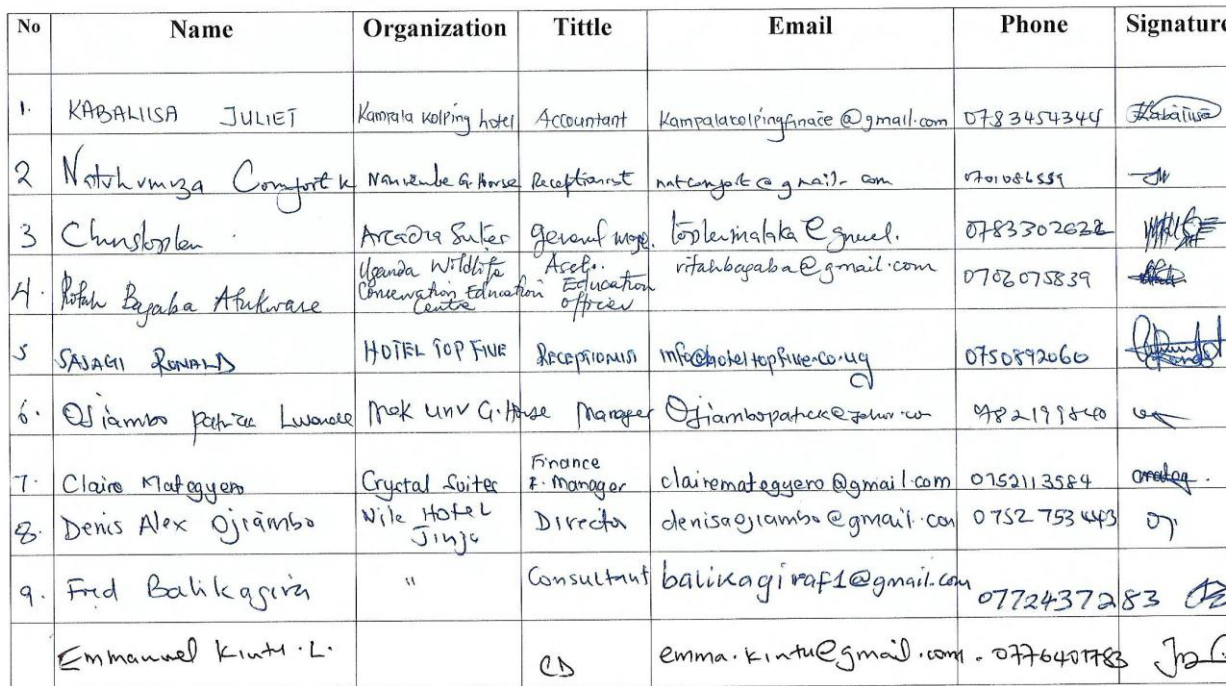 No Name Organization Tittle Email Phone Signature
1. KABALIISA JULIET Kampala Kolping hotel Accountant Kampalakolpingfinace@gmail.com 0783454344 Kabaliisa
2 Comfort K G. House Receptionist natcomfort@gmail.com 0701086559
3 Arcadia Suites 0783302622
4. Bagaba Atukwase Uganda Wildlife Conservation Education Centre Education officer ritahbagaba@gmail.com 0702075839
5 SAJAGI RONALD HOTEL TOP FIVE RECEPTIONIST info@hoteltopfive.co.ug 0750892060
6. Ojiambo Mak Unv G. House Manager 0782199840
7. Claire Mategyero Crystal Suites Finance Manager clairemategyero@gmail.com 0752113584
8. Denis Alex Ojiambo Nile Hotel Jinja Director denisaojiambo@gmail.com 0752 753 443
9. Fred Balikagira " Consultant balikagiraf1@gmail.com 0772437283
Emmanuel Kintu .L. CD emma.kintu@gmail.com. 0776401783